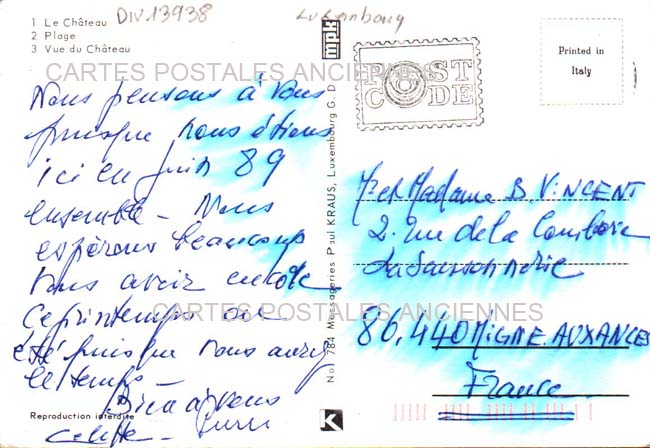 1 Le Château
2 Plage
3 Vue du Château
DIV 13938
Luxembourg
mpk
POST
CODE
Printed in
Italy
CARTES POSTALES ANCIENNES
Nous pensons à vous
puisque nous étions
ici en juin 89
ensemble - Nous
espérons beaucoup
vous avoir encore
ce printemps ou
été puisque vous aurez
le temps -
Bien à vous
Reproduction interdite
No. 784 Messageries Paul KRAUS, Luxembourg G. D.
K
Mr et Madame B VINCENT
2. rue de la
86.440 MIGNE. AUXANCES
France
CARTES POSTALES ANCIENNES